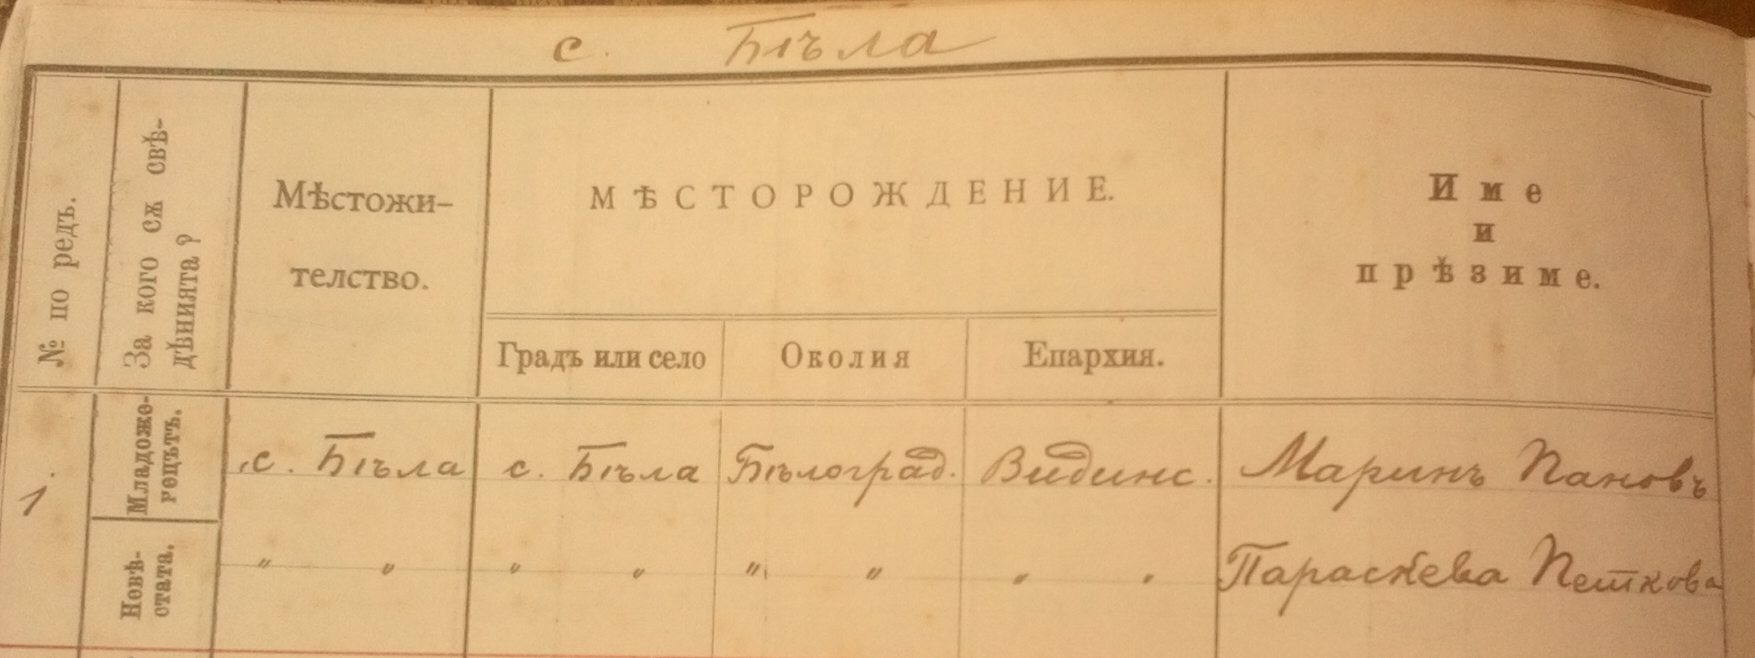 с. Бѣла
№ по редъ.
За кого сѫ свѣ-
дѣнията?
Мѣстожи-
телство.
МѢСТОРОЖДЕНИЕ.
Градъ или село
Околия
Епархия.
Име
и
прѣзиме.
1.
Младоже-
нецътъ.
с. Бѣла
с. Бѣла
Бѣлоград.
Видинс.
Маринъ Пановъ
Новѣ-
стата.
" "
" "
" "
" "
Параскева Петкова